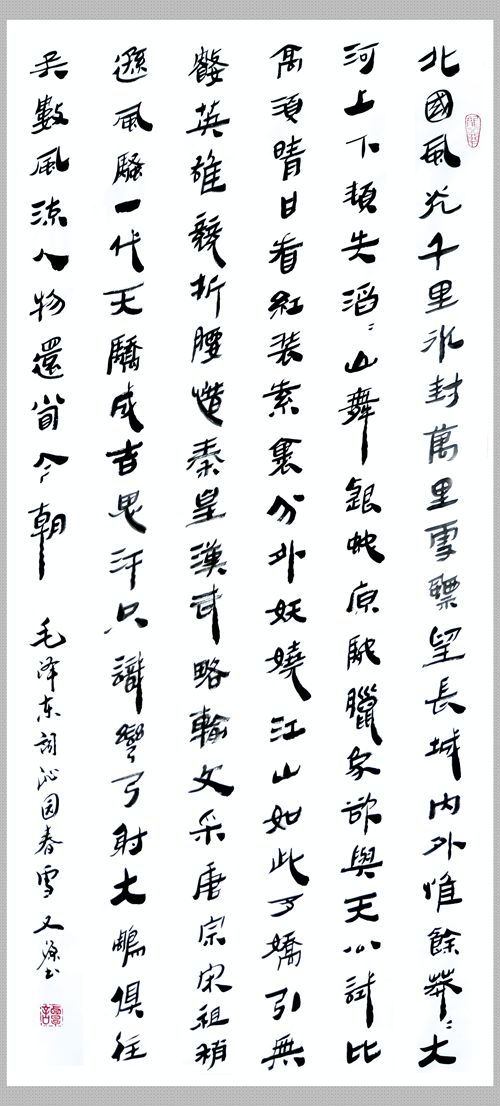 北國風光千里冰封萬里雪飄望長城内外惟餘莽〻大
河上下頓失滔〻山舞銀蛇原馳臘象欲與天公試比
高須晴日看紅裝素裹分外妖嬈江山如此多嬌引無
數英雄競折腰惜秦皇漢武略輸文采唐宗宋祖稍
遜風騷一代天驕成吉思汗只識彎弓射大鵰俱往
矣數風流人物還看今朝
毛泽东词沁园春雪